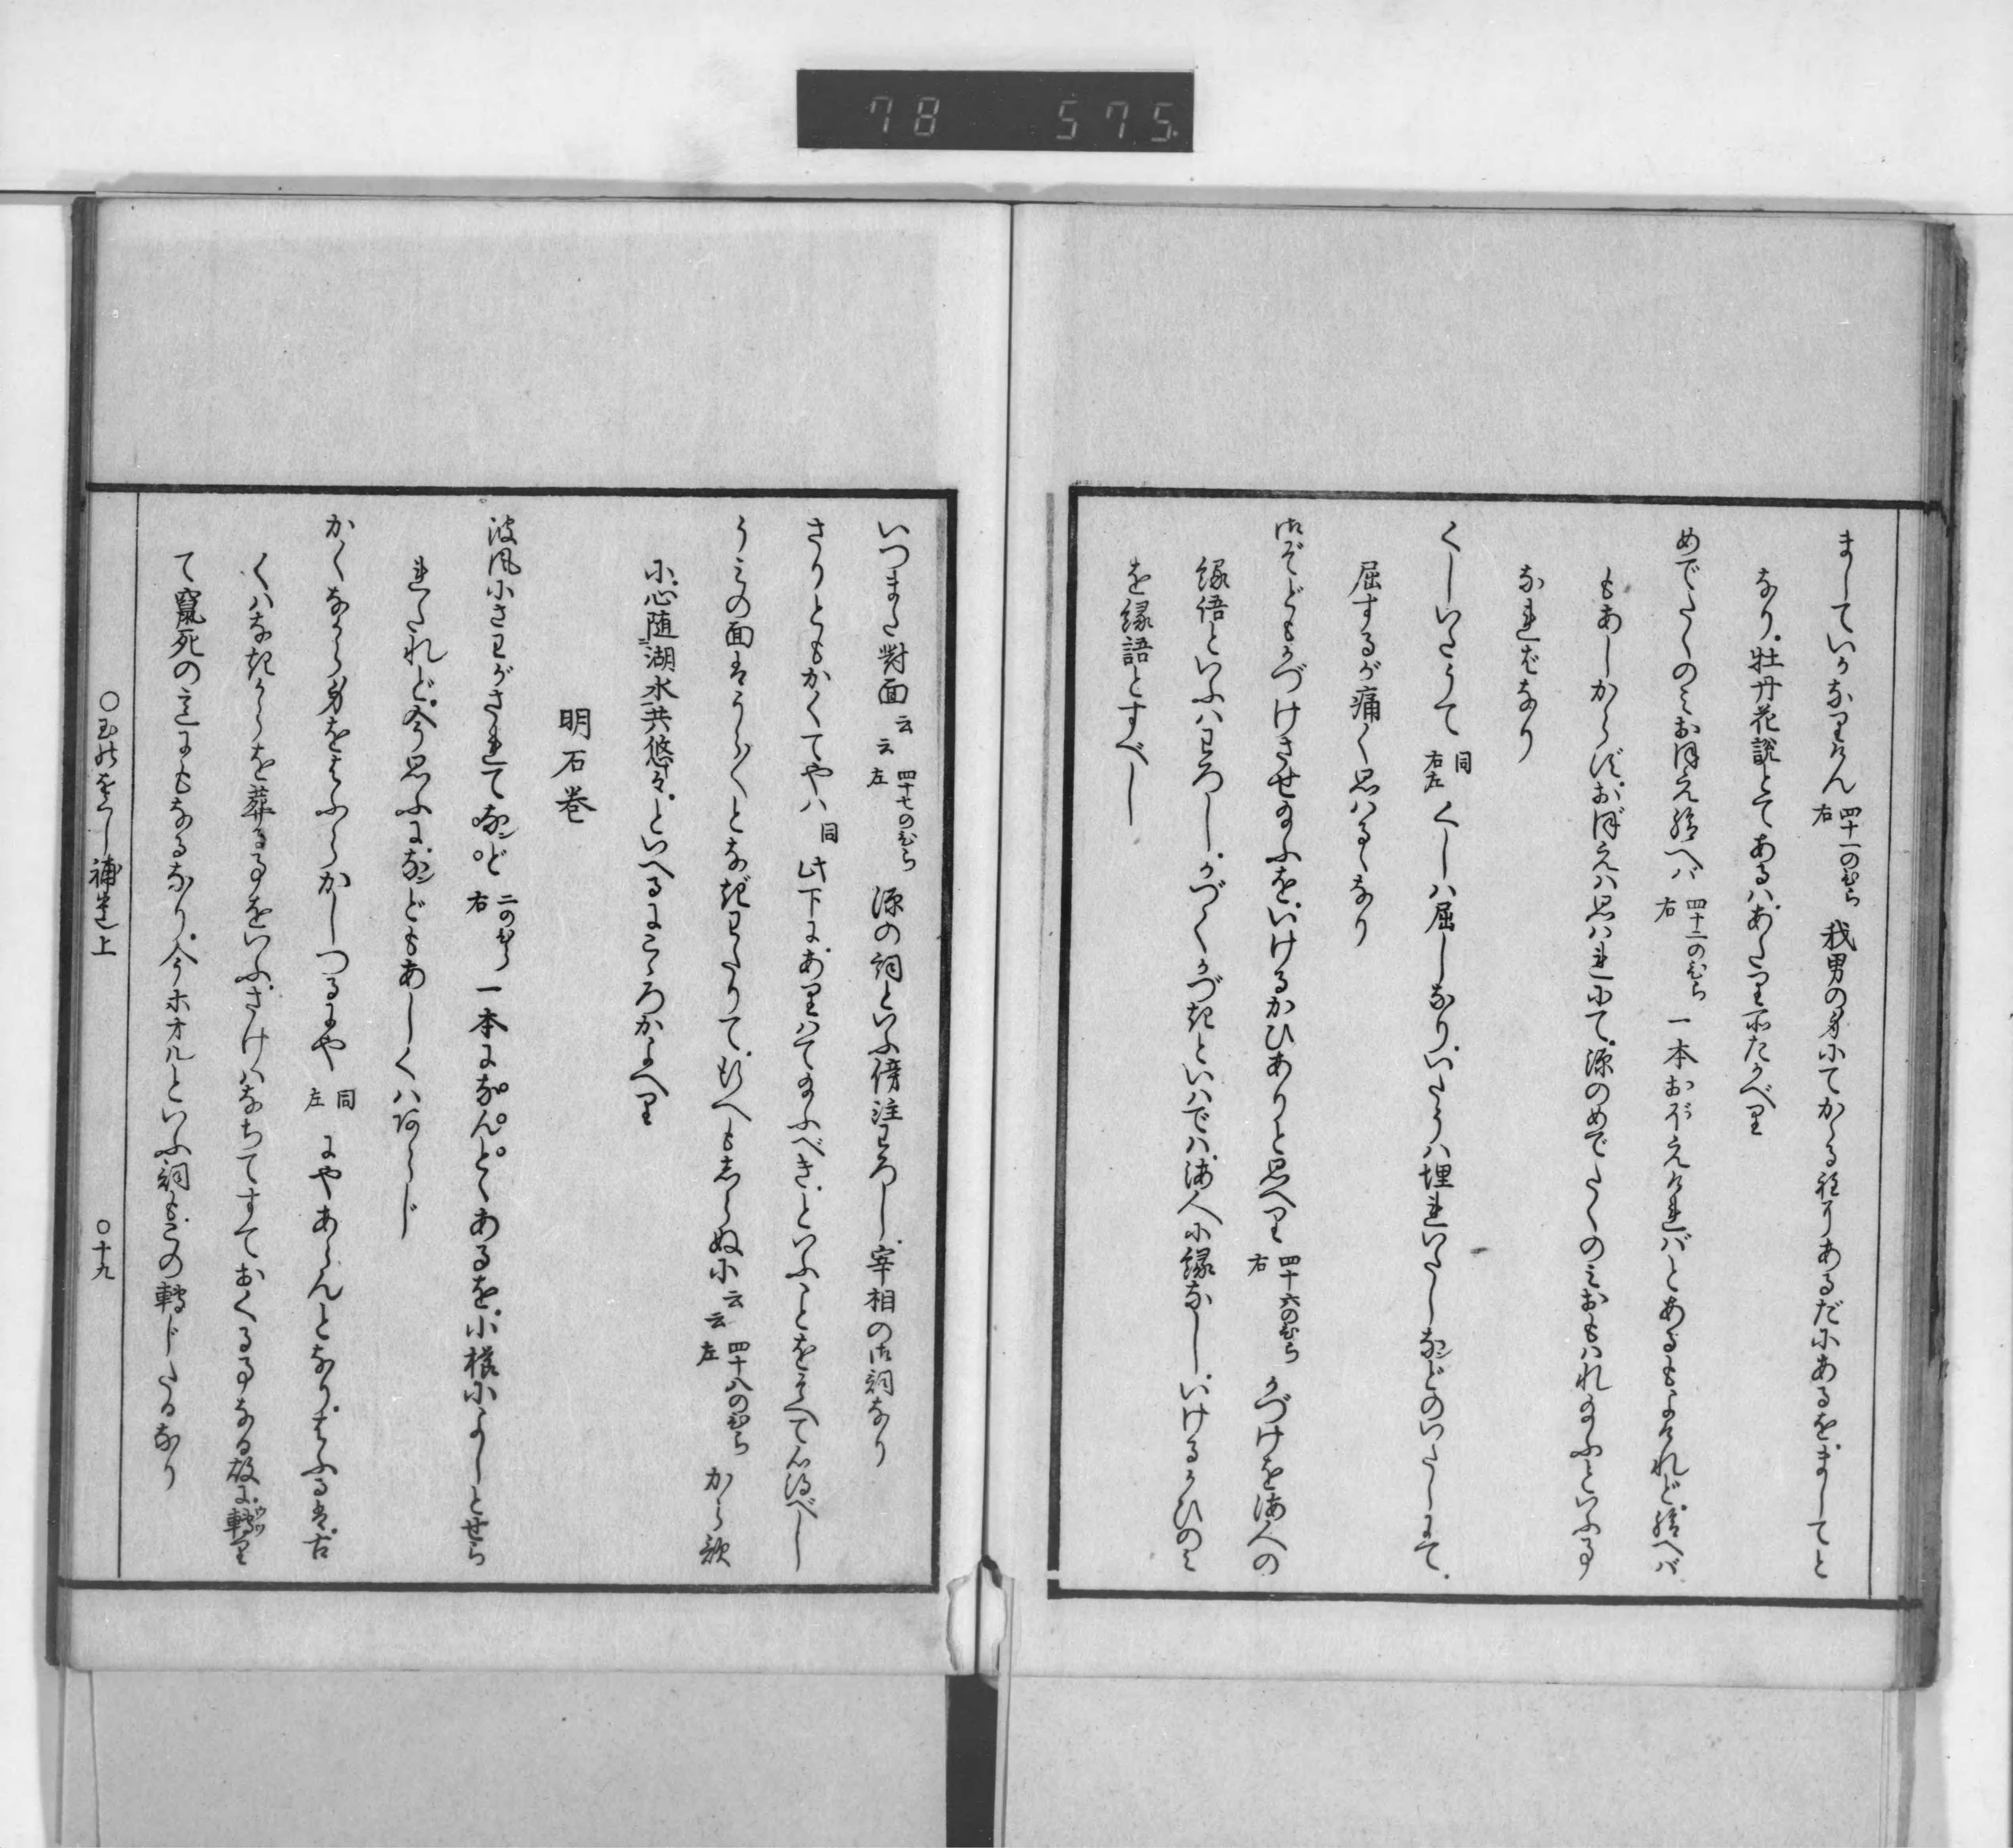 78 575
ましていかなりけん 四十一のひら右 我男の身にてかゝる程にあるだにあるを、ましてと
なり、牡丹花説とてあるは、あたりまへたがへり
めでたくのみおぼえ給へバ 四十二のひら右 一本おぼえけれバとあるもよけれど、給へバ
もあしからず、おぼえハ思ハれにて、源のめでたくのみおもハれ給ふといふ事
なればなり
くしいたうて 同右左 くしハ屈しなり、いたうハ埋れいたしなどのいたしにて、
屈するが痛く思ハるゝなり
御ぞどもかづけさせ給ふを、いけるかひありと思へり 四十六のひら右 かづけを海人の
縁語といふハわろし、かづくかづきといハでハ、海人に縁なし、いけるかひのミ
を縁語とすべし
いつまた對面云云 四十七のひら左 源の詞といふ傍注わろし、宰相の御詞なり
さりともかくてやハ 同 此下に、ありはて給ふべき、といふことをそへて心得べし
うミの面はうら〳〵となぎわたりて、行へもしらぬに云云 四十八のひら左 から歌
に、心随湖水共悠々、といへるにこゝろかよへり
明石巻
波風にさわがされてなンど 二のひら右 一本になんとゝあるを、小櫛によしとせら
れたれど、今思ふに、なンどもあしくハあらじ
かくながら身をはふらかしつるにや 同左 にやあらんとなり、はふるは、古
くハなきからを葬る事をいふ、さけはなちてすておくる事なる故に、轉りウツ
て竄死の意にもなるなり、今ホオルといふ詞も、この轉じたるなり
○玉のをぐし補遺上 ○十九